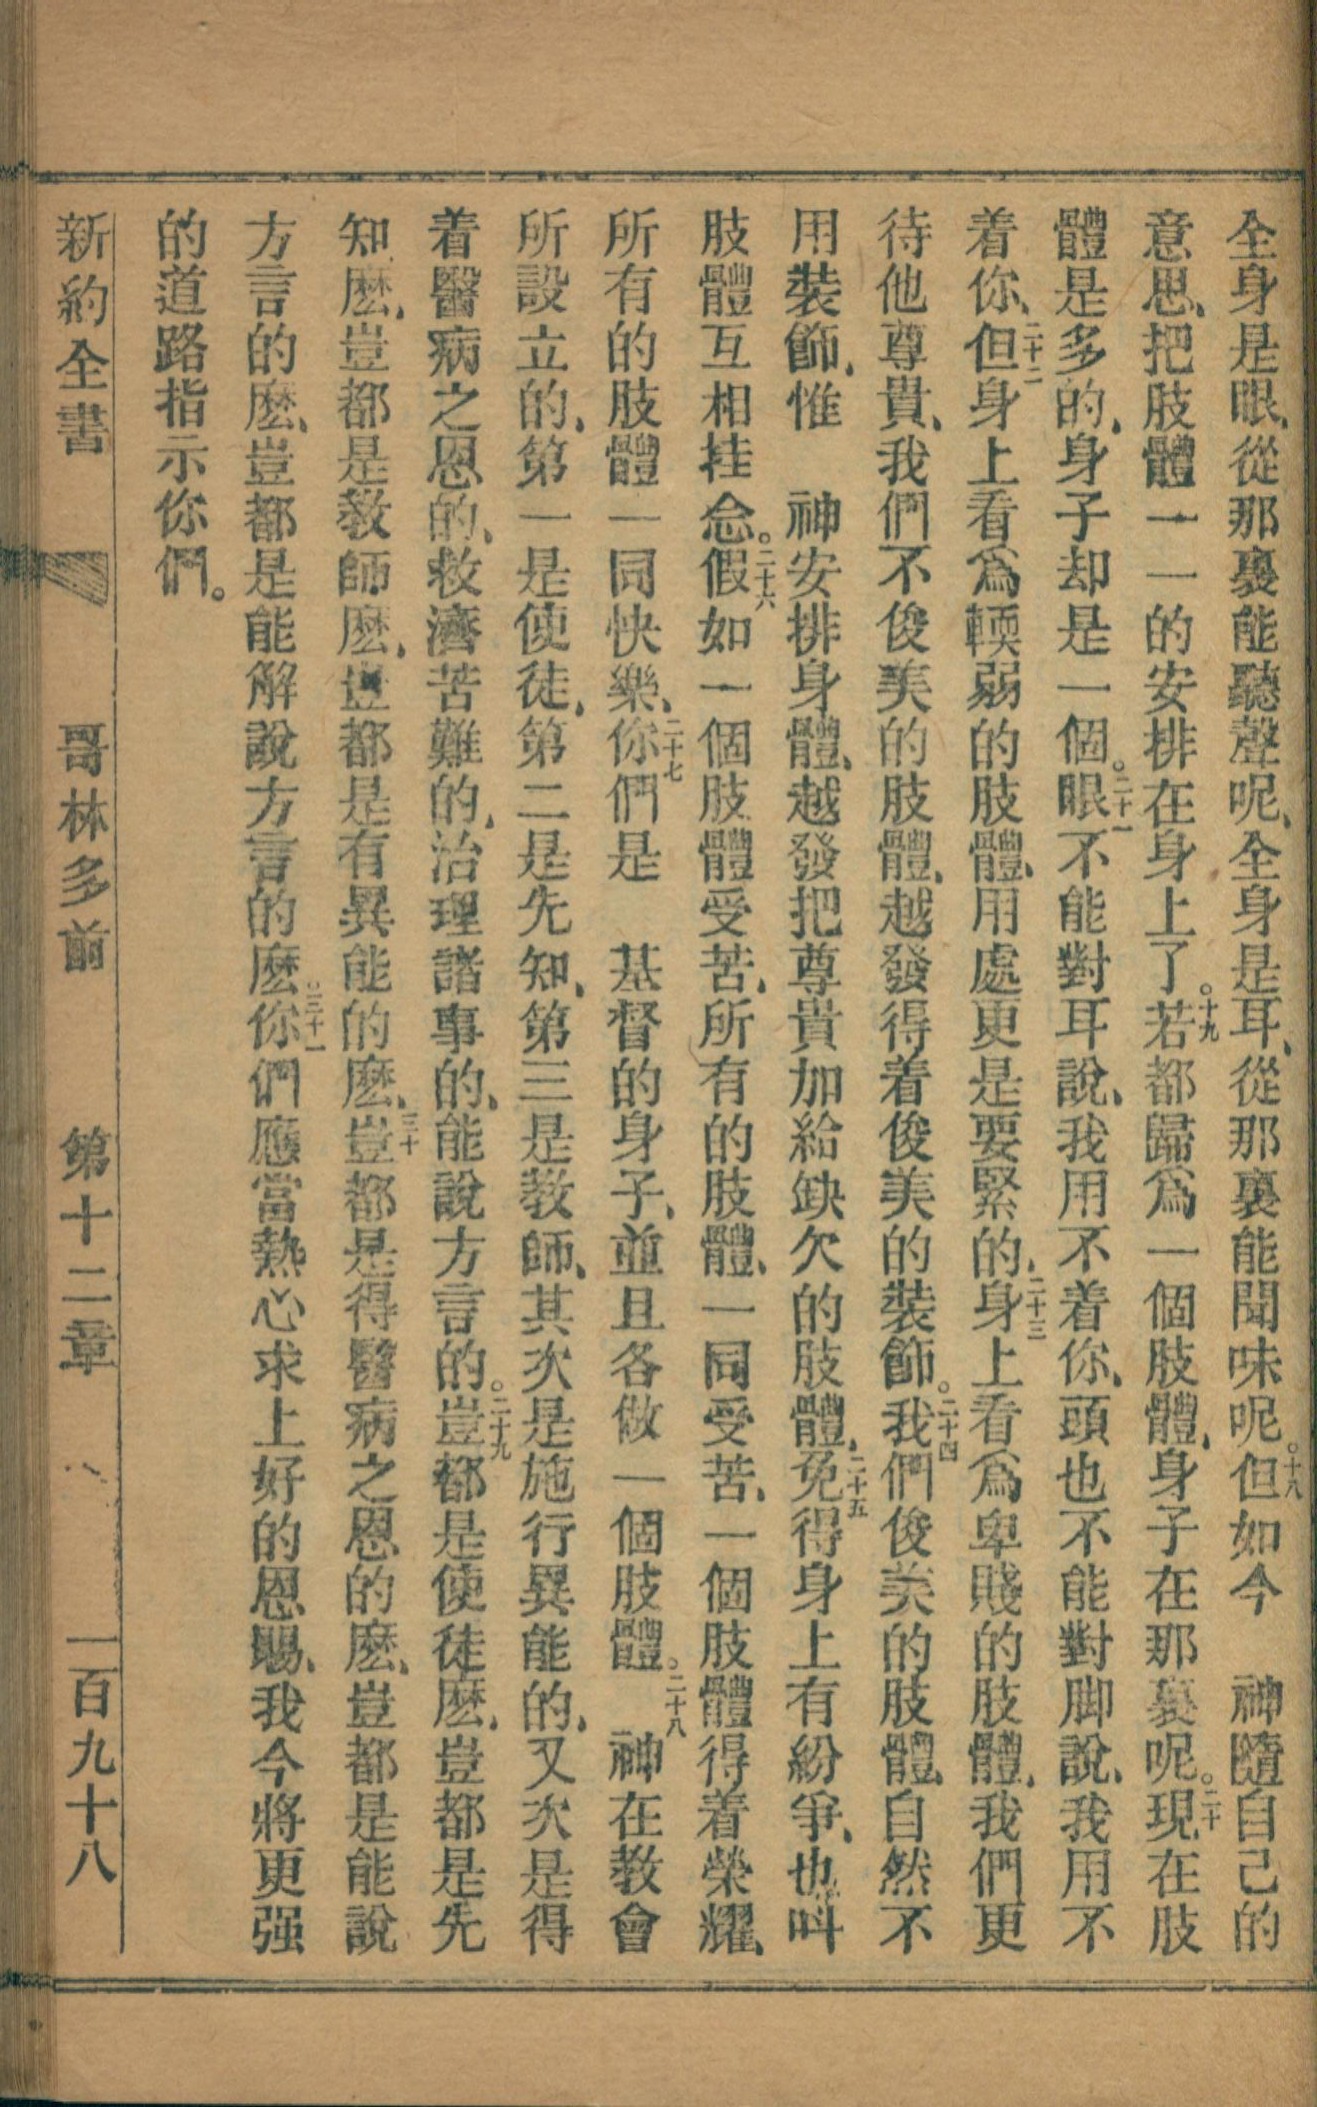 全身是眼、從那裏能聽聲呢、全身是耳、從那裏能聞味呢。十八但如今　神隨自己的
意思、把肢體一一的安排在身上了。十九若都歸爲一個肢體、身子在那裏呢。二十現在肢
體是多的、身子却是一個。二十一眼不能對耳說、我用不着你、頭也不能對脚說、我用不
着你、二十二但身上看爲輭弱的肢體、用處更是要緊的、二十三身上看爲卑賤的肢體、我們更
待他尊貴、我們不俊美的肢體、越發得着俊美的裝飾。二十四我們俊美的肢體、自然不
用裝飾、惟　神安排身體、越發把尊貴加給缺欠的肢體、二十五免得身上有紛爭、也叫
肢體互相挂念。二十六假如一個肢體受苦、所有的肢體、一同受苦、一個肢體得着榮耀、
所有的肢體一同快樂、二十七你們是　基督的身子、並且各做一個肢體。二十八　神在教會
所設立的、第一是使徒、第二是先知、第三是教師、其次是施行異能的、又次是得
着醫病之恩的、救濟苦難的、治理諸事的、能說方言的。二十九豈都是使徒麽、豈都是先
知麽、豈都是教師麽、豈都是有異能的麽、三十豈都是得醫病之恩的麽、豈都是能說
方言的麽、豈都是能解說方言的麽。三十一你們應當熱心求上好的恩賜、我今將更强
的道路指示你們。
新約全書　哥林多前　第十二章　一百九十八